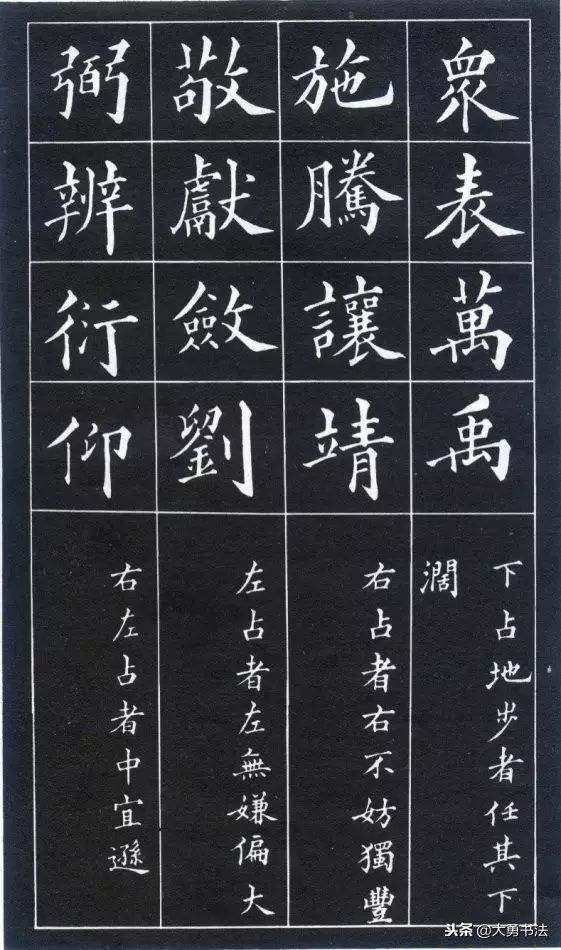 眾表萬禹
下占地步者任其下
濶
施騰讓靖
右占者右不妨獨豐
敬獻斂劉
左占者左無嫌偏大
弼辨衍仰
右左占者中宜遜
头条@大勇书法